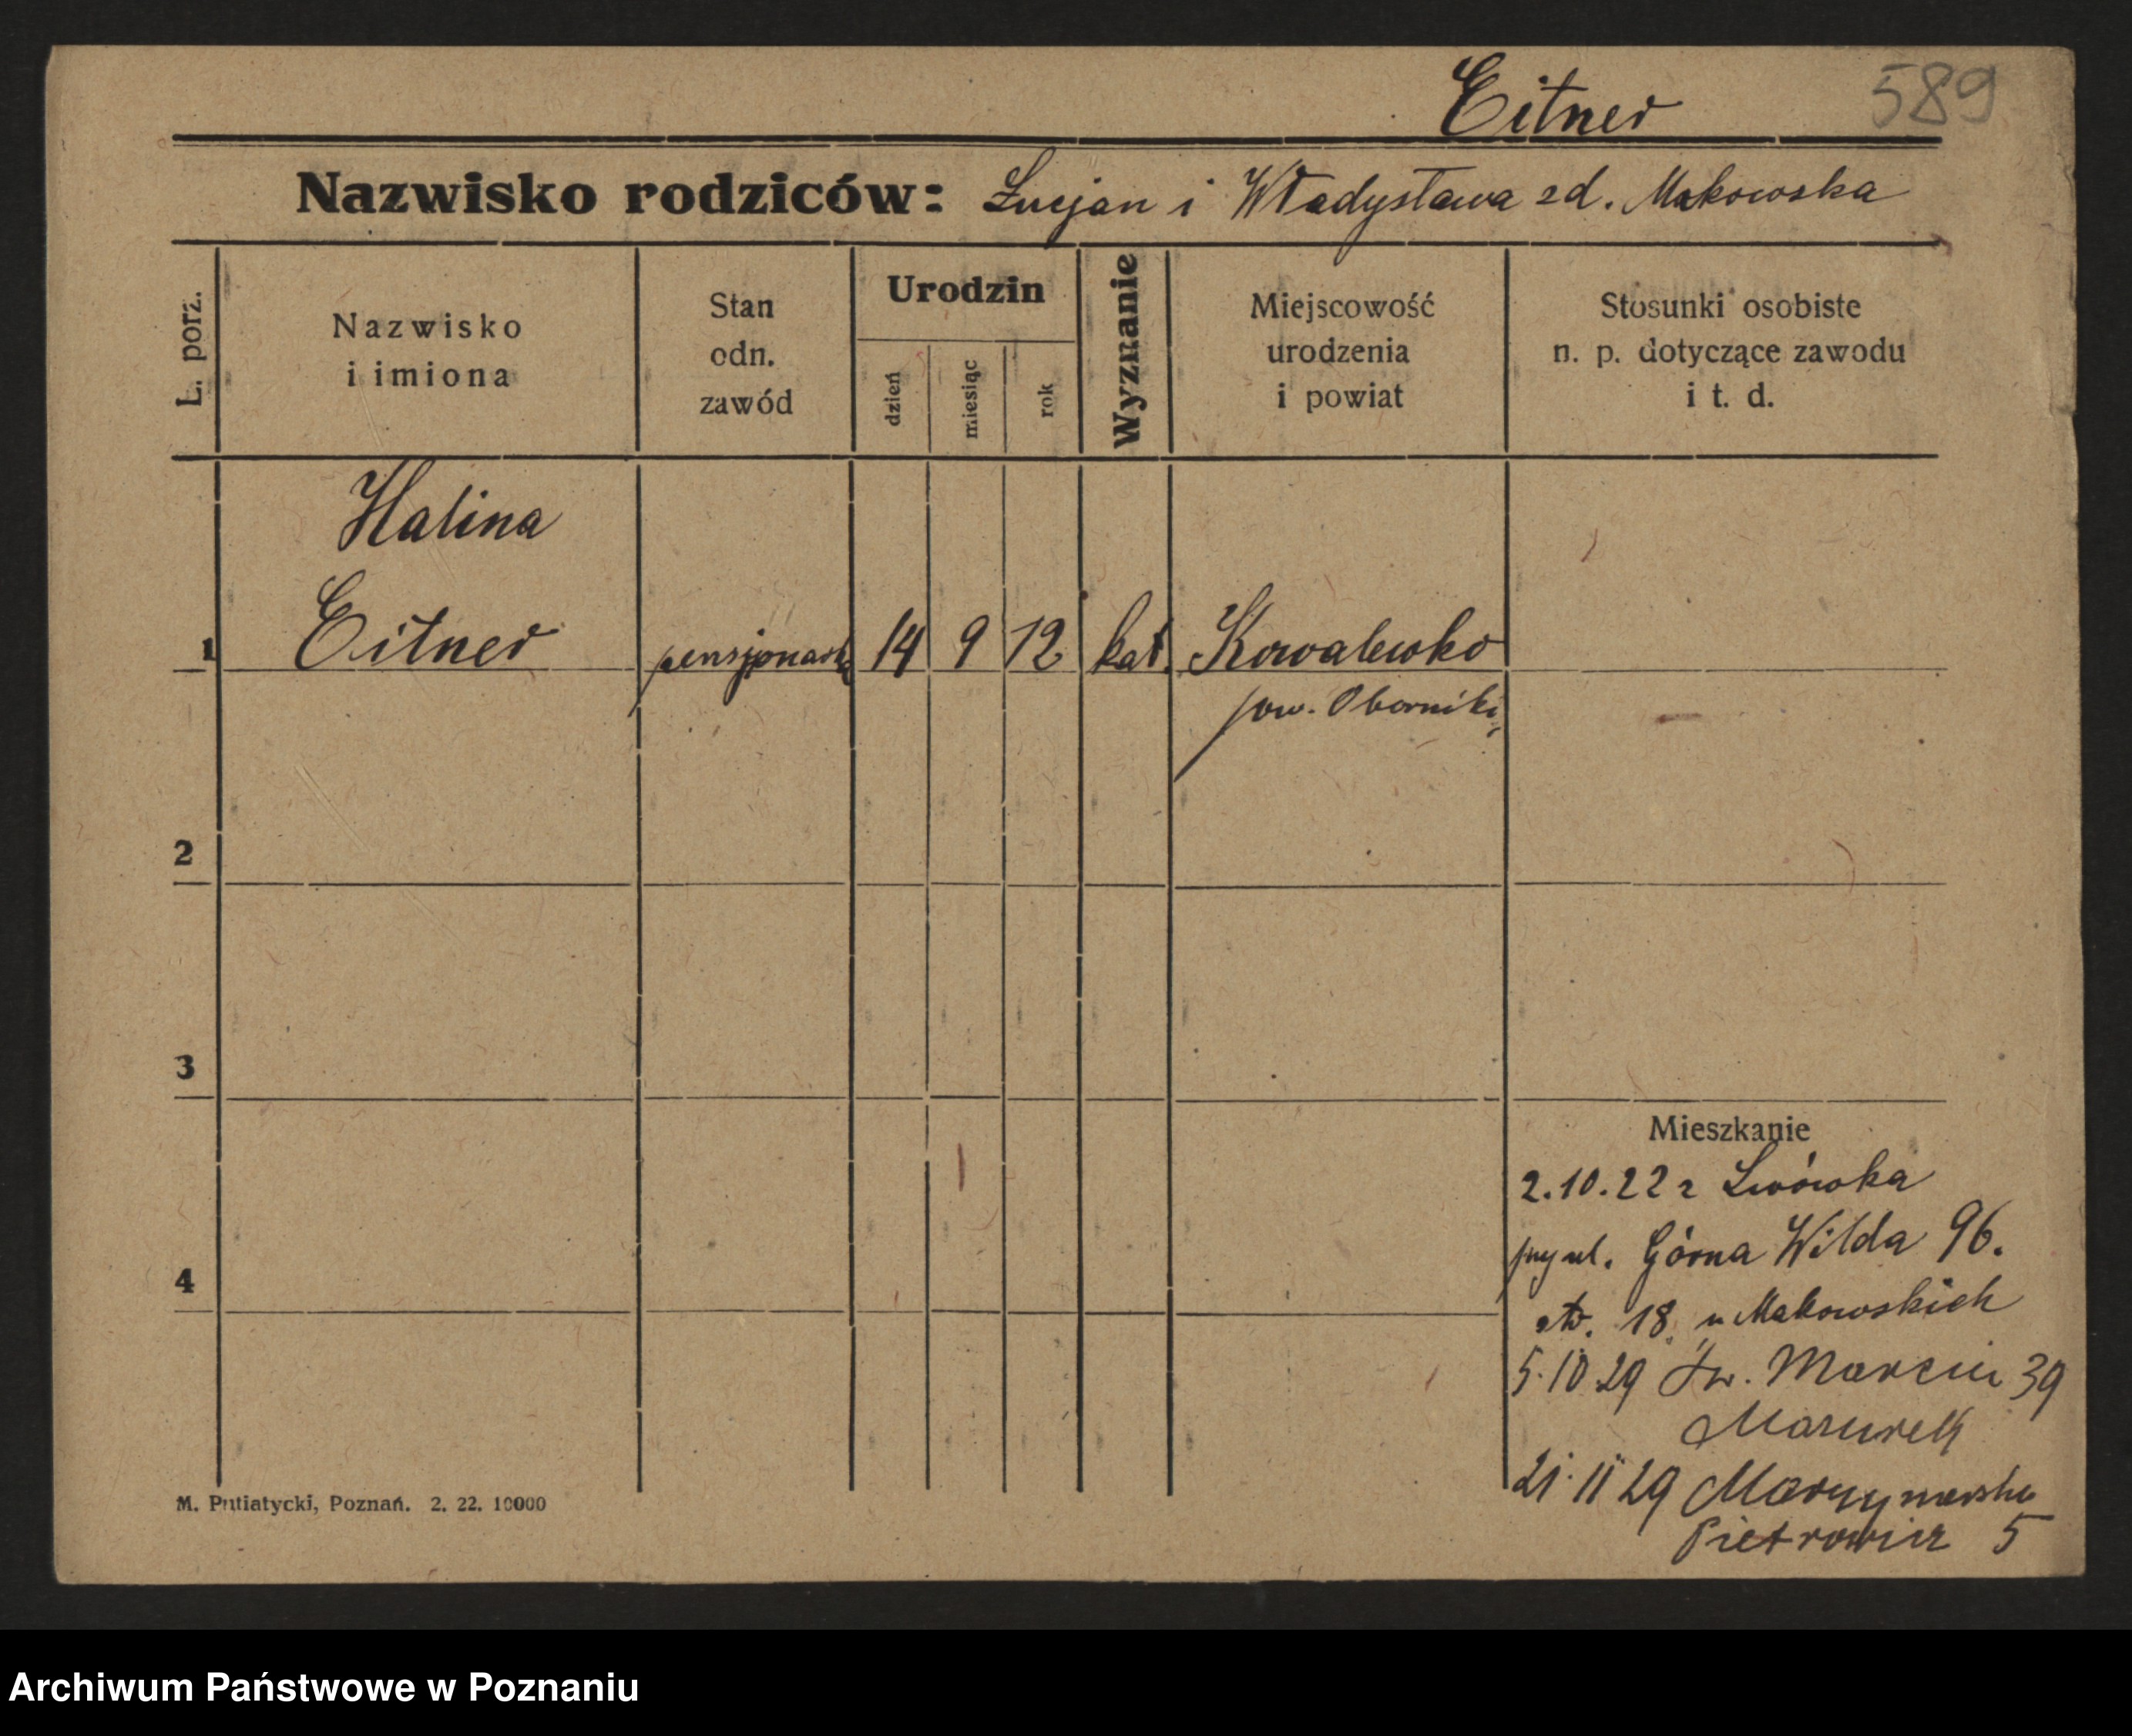 Eitner 589
Nazwisko rodziców: Łucjan i Władysława zd. Makowska
L. porz.
Nazwisko
i imiona
Stan
odn.
zawód
Urodzin
dzień
miesiąc
rok
Wyznanie
Miejscowość
urodzenia
i powiat
Stosunki osobiste
n. p. dotyczące zawodu
i t. d.
Halina
1 Eitner pensjonarka 14 9 12 kat. Kowalewko
pow. Oborniki
2
3
Mieszkanie
2.10.22 z Lwówka
przy ul. Górna Wilda 96.
4
18 u Makowskich
5.10.29 Św. Marcin 39
Mazurek
21.11 29 Marynarska
Pietrowicz 5
M. Putiatycki, Poznań. 2. 22. 10000
Archiwum Państwowe w Poznaniu